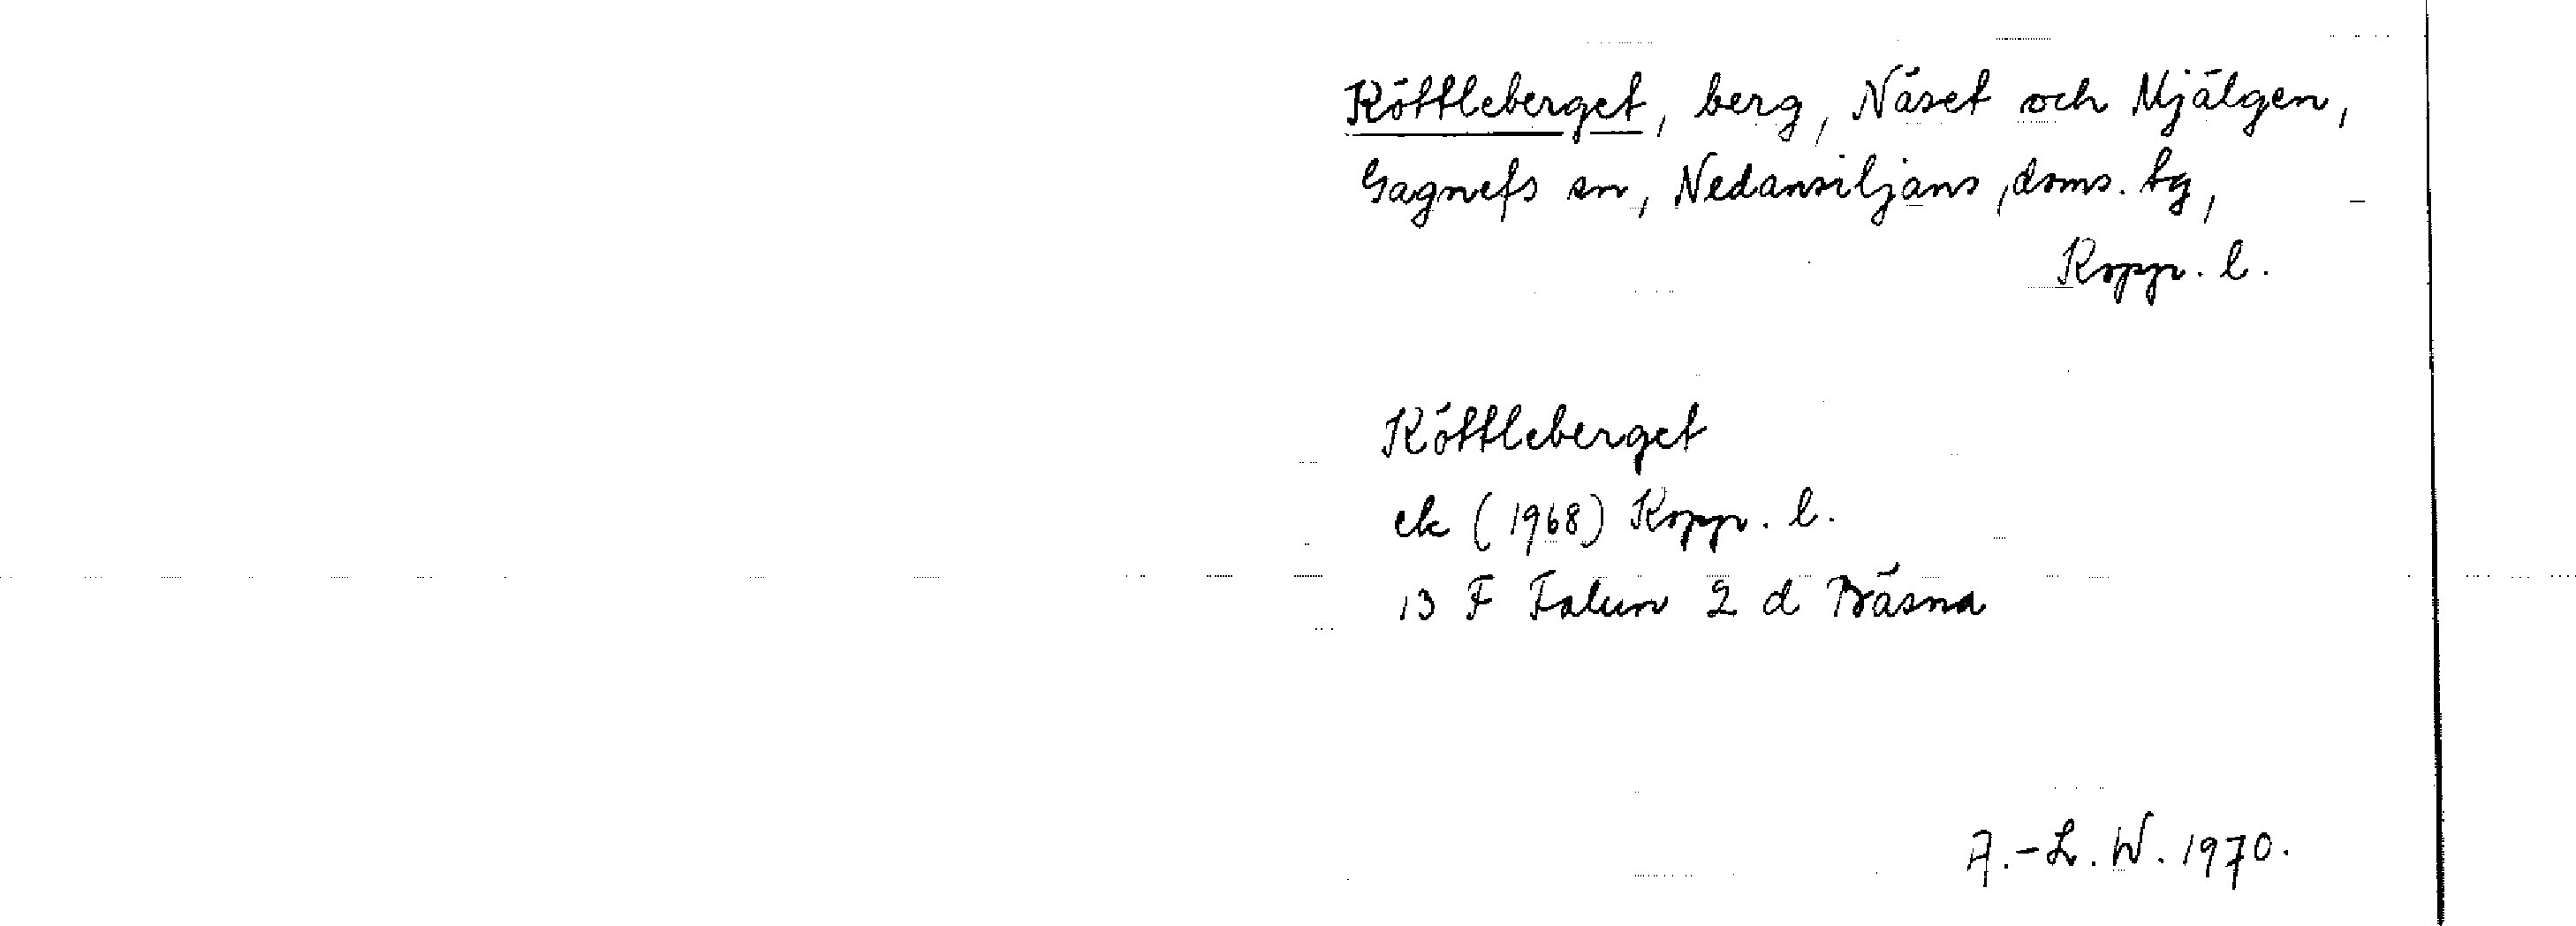 Köttleberget, berg, Näset och Mjälgen,
Gagnefs sn, Nedansiljans doms. tg,
Kopp. l.
Köttleberget
ek (1968) Kopp. l.
13 F Falun 2 d Bäsna
A.-L. W. 1970.